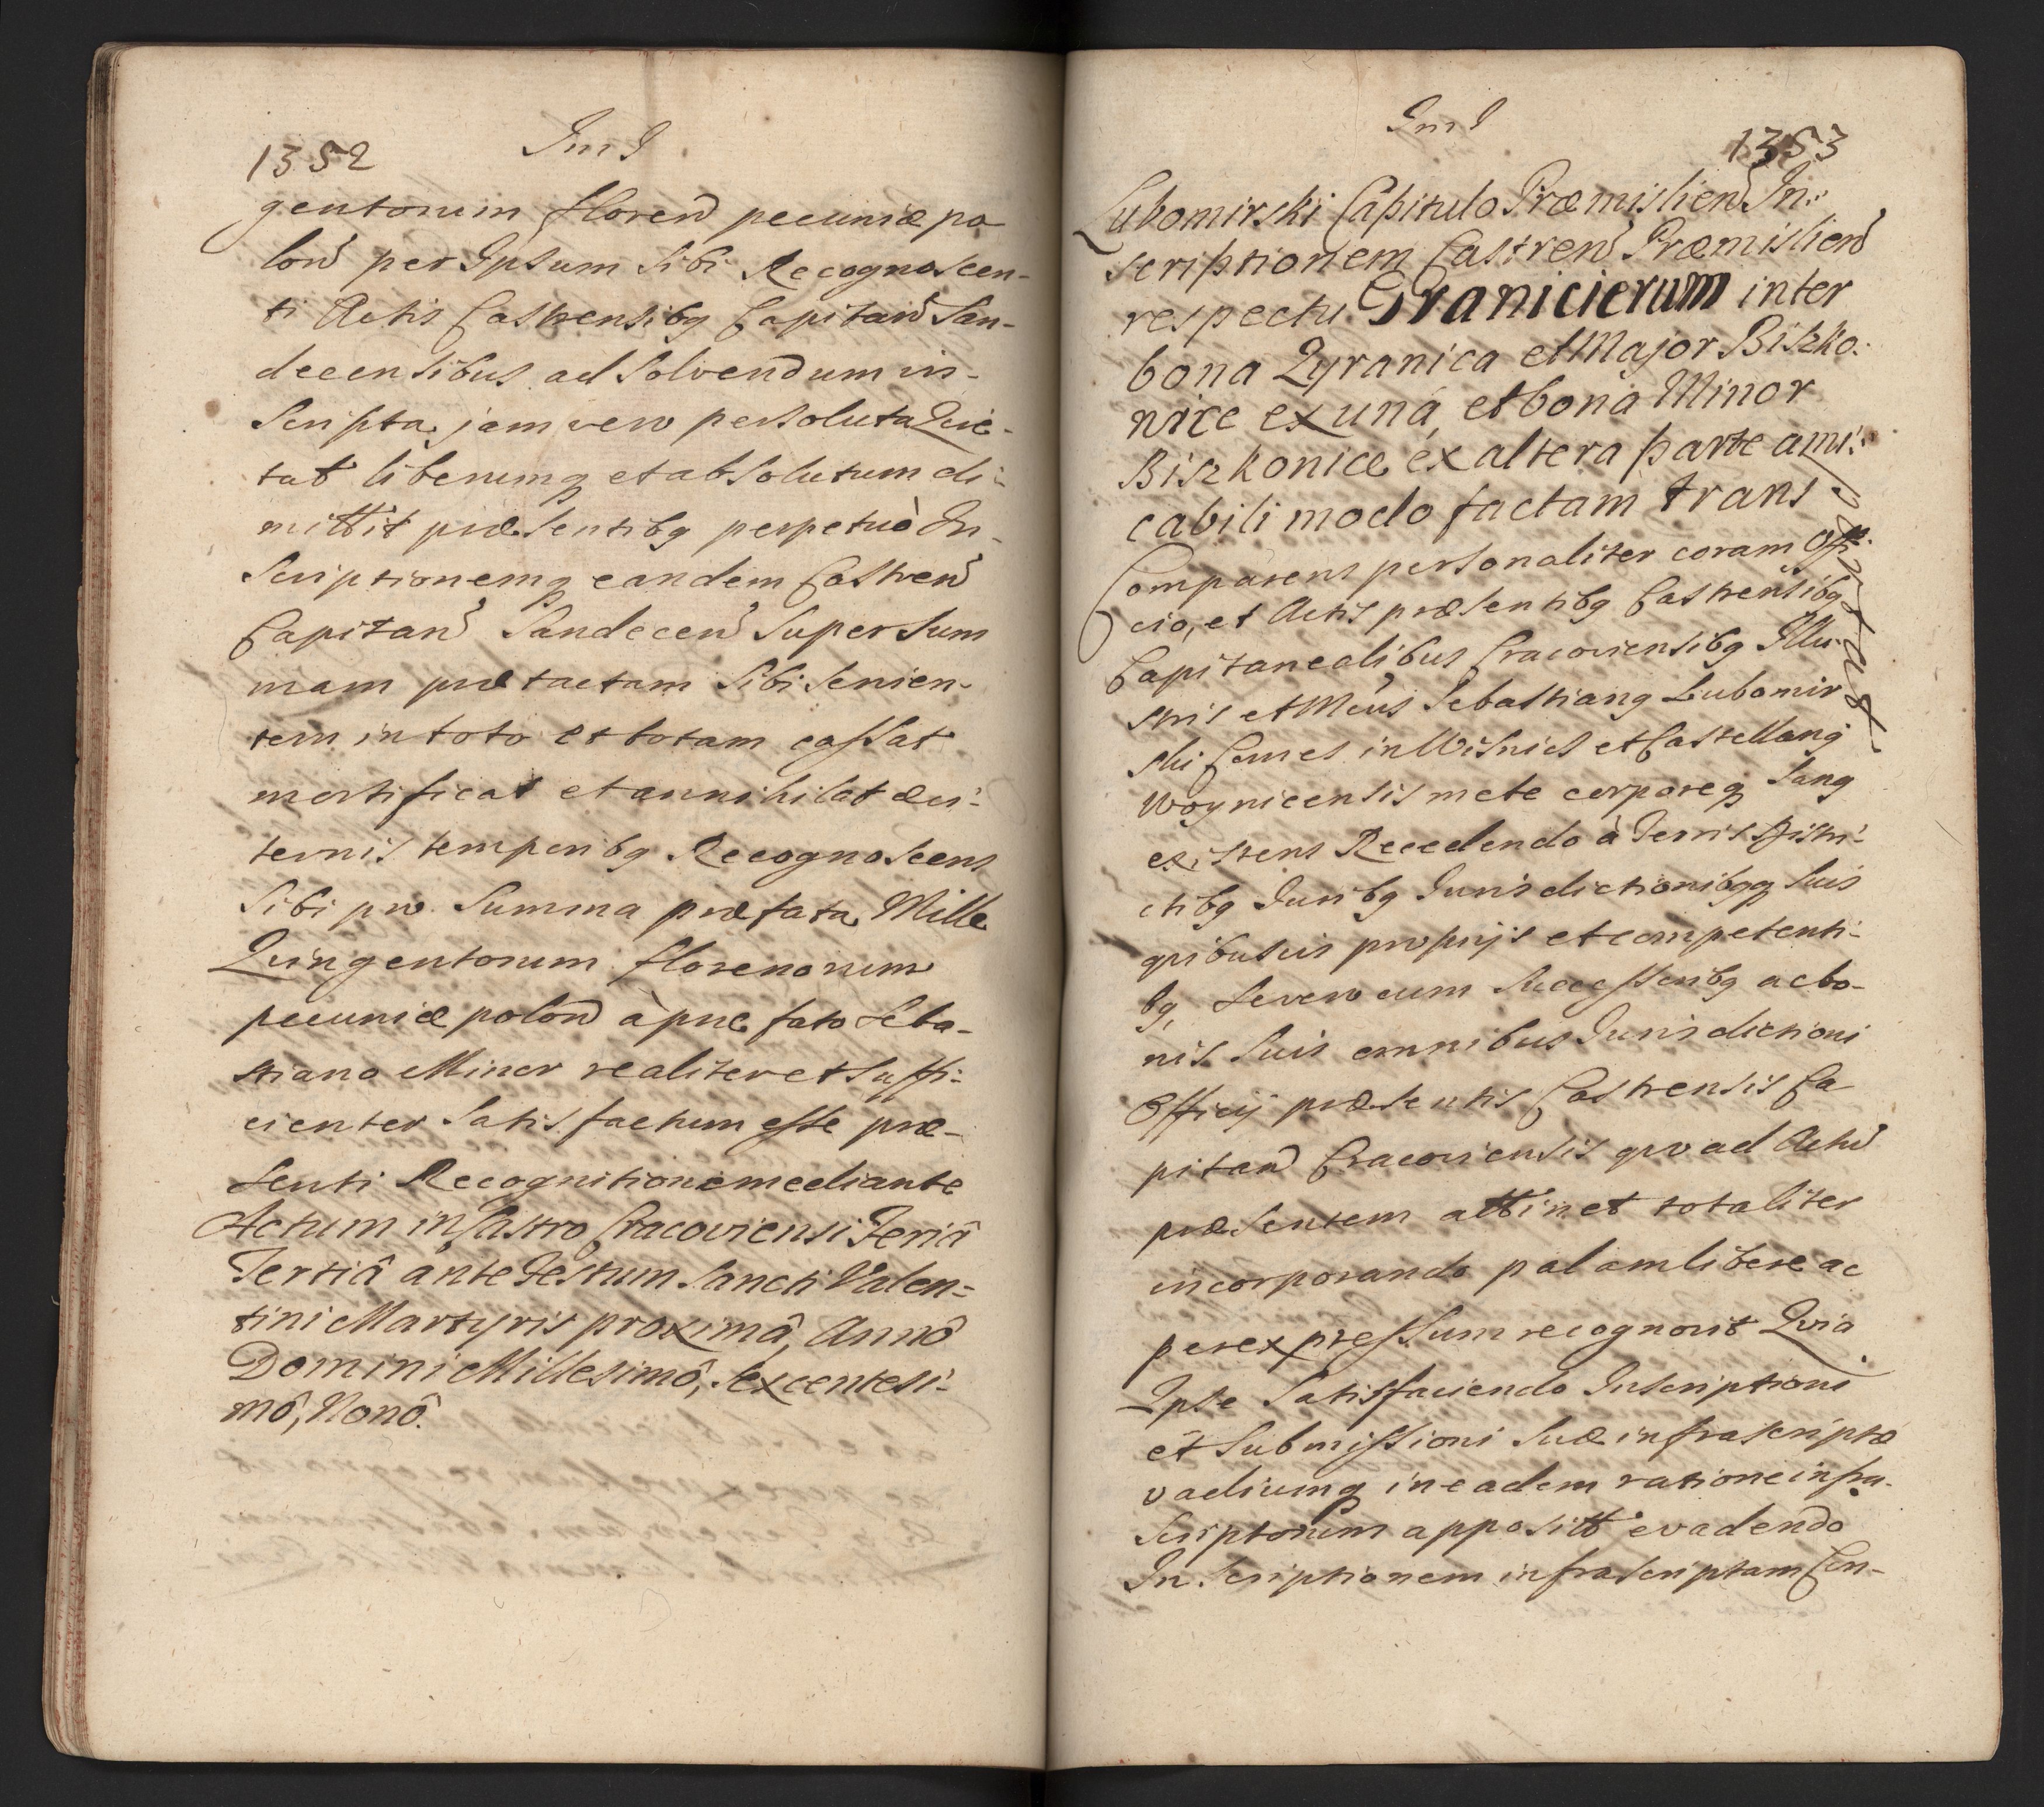 1352
gentorum floren pecuniæ po
lon per Ipsum sibi Recognoscen-
ti Actis Castrensibg Capitan San-
decensibus ad solvendum in-
scripta jam vero persoluta Quie-
tat liberumq et absolutum di-
mittit præsentibg perpetuò In-
scriptionemq eandem Castren
Capitan Sandecen super sum
mam prætactam sibi servien-
tem in toto et totam cassat
mortificat et annihilat ævi-
ternis temporibg Recognoscens
sibi pro summa præfata Mille
Quingentorum florenorum
pecuniæ polon à præfato Seba-
stiano Miner realiter et suffi-
cienter satisfactum esse præ-
senti Recognitione mediante
Actum in Castro Cracoviensi Feriâ
Tertiâ ante Festum Sancti Valen-
tini Martyris proximâ, Annô
Domini Millesimô, sexcentesi-
mô, Nonô.
1353
Lubomirski Capitulo Præmislien In:
scriptionem Castren Præmislien
respectu Granicierum inter
bona Zyranica et Major Biszko:
nice ex una, et bona Minor
Biszkonice ex altera parte ami:
cabili modo factam trans
Comparens personaliter coram Offi:
cio, et Actis præsentibg Castrensibg
Capitanealibus Cracoviensibg Illu-
stris et Mcus Sebastiang Lubomir
ski Comes in Wisnicz et Castellang
Woynicensis mete corporeq sang
existens Recedendo à Terris Distri-
ctibg Juribg Jurisdictionibgq suis
quibusvis proprijs et competenti-
bg, se vero cum successoribg ac bo-
nis suis omnibus Jurisdictioni
Officij præsentis Castrensis Ca
pitan Cracoviensis quo ad Actu
præsentem attinet totaliter
incorporando palam libere ac
per expressum recognovit Quia
Ipse satisfaciendo Inscriptioni
et submissioni suæ infrascriptæ
vadiumq in eadem ratione infra-
scriptorum apposit evadendo
Inscriptionem infrascriptam Con-